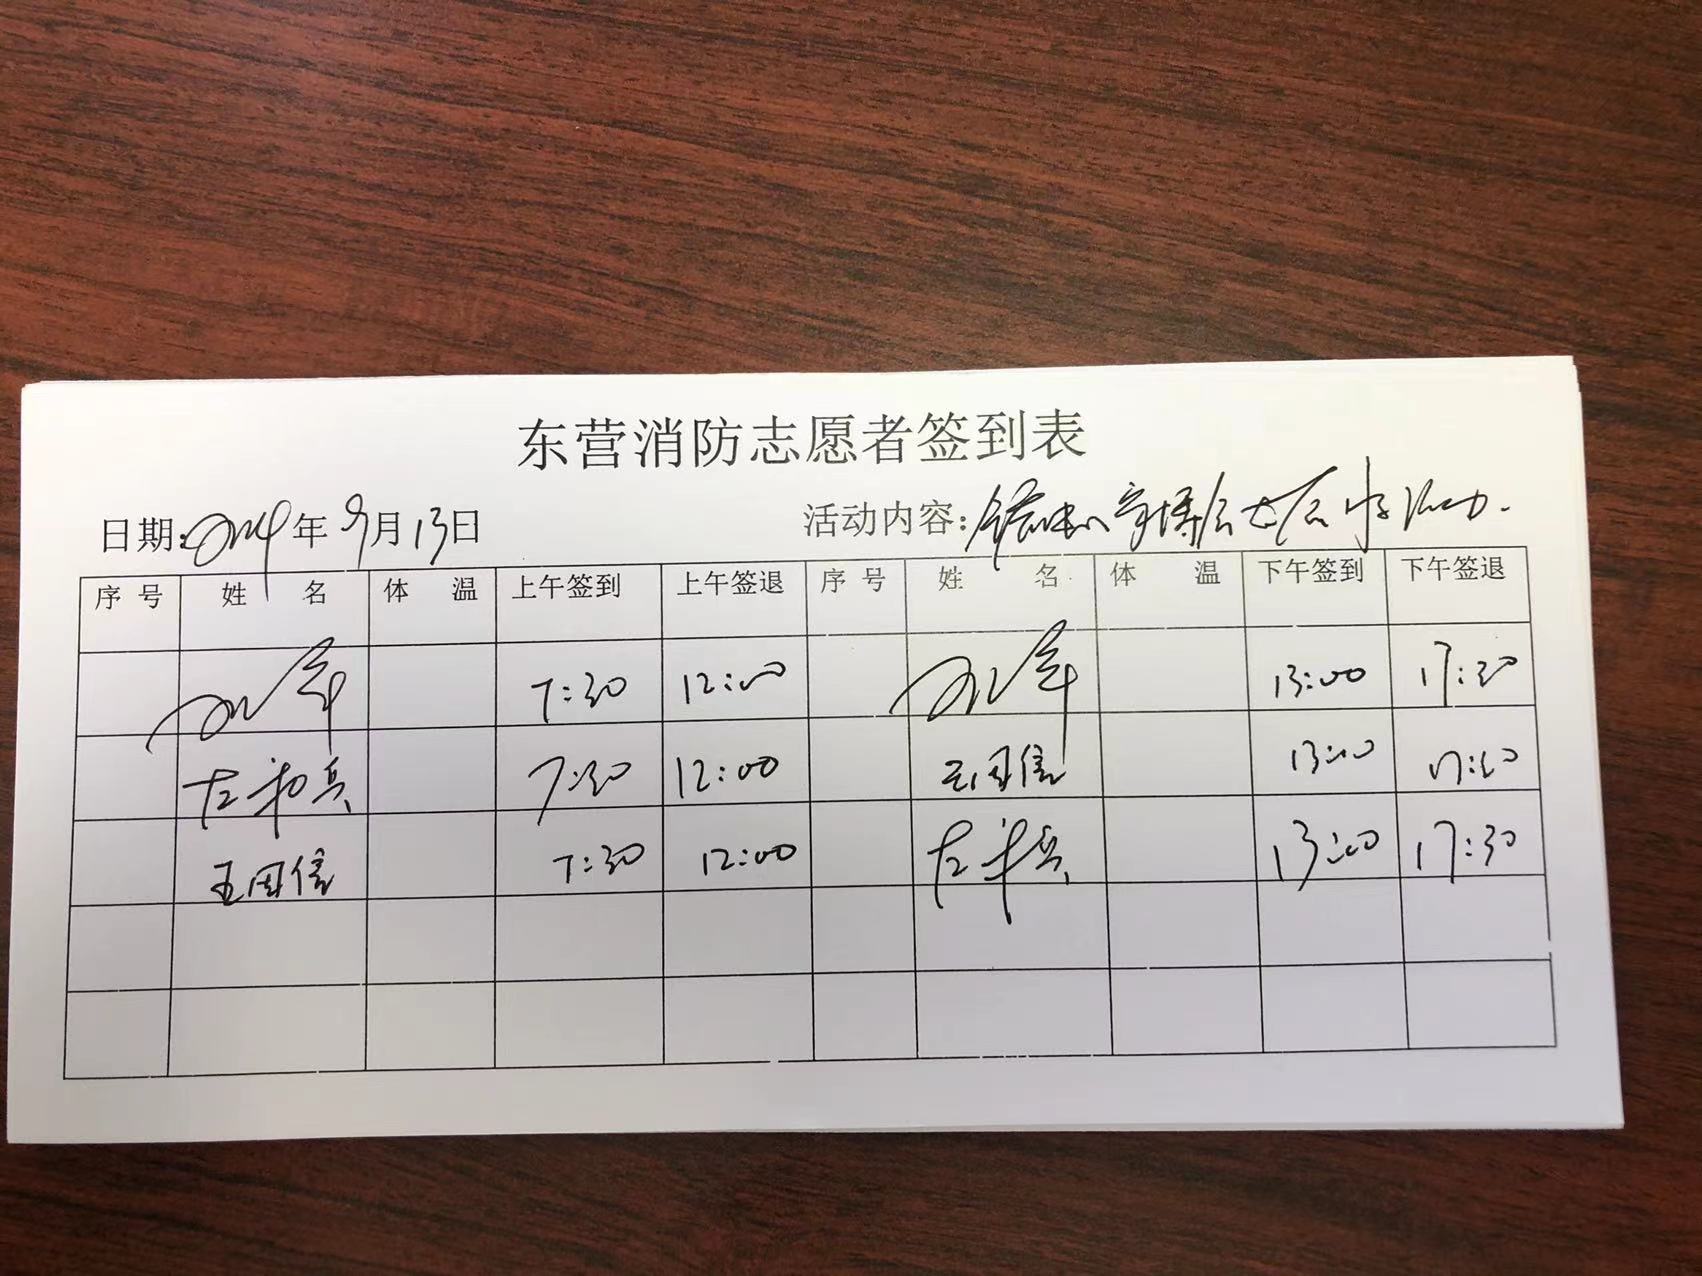 东营消防志愿者签到表
日期:2024年9月13日 活动内容:
序号 姓名 体温 上午签到 上午签退 序号 姓名 体温 下午签到 下午签退
7:30 12:00 13:00 17:30
左和兵 7:30 12:00 王国信 13:00 17:30
王国信 7:30 12:00 左和兵 13:00 17:30